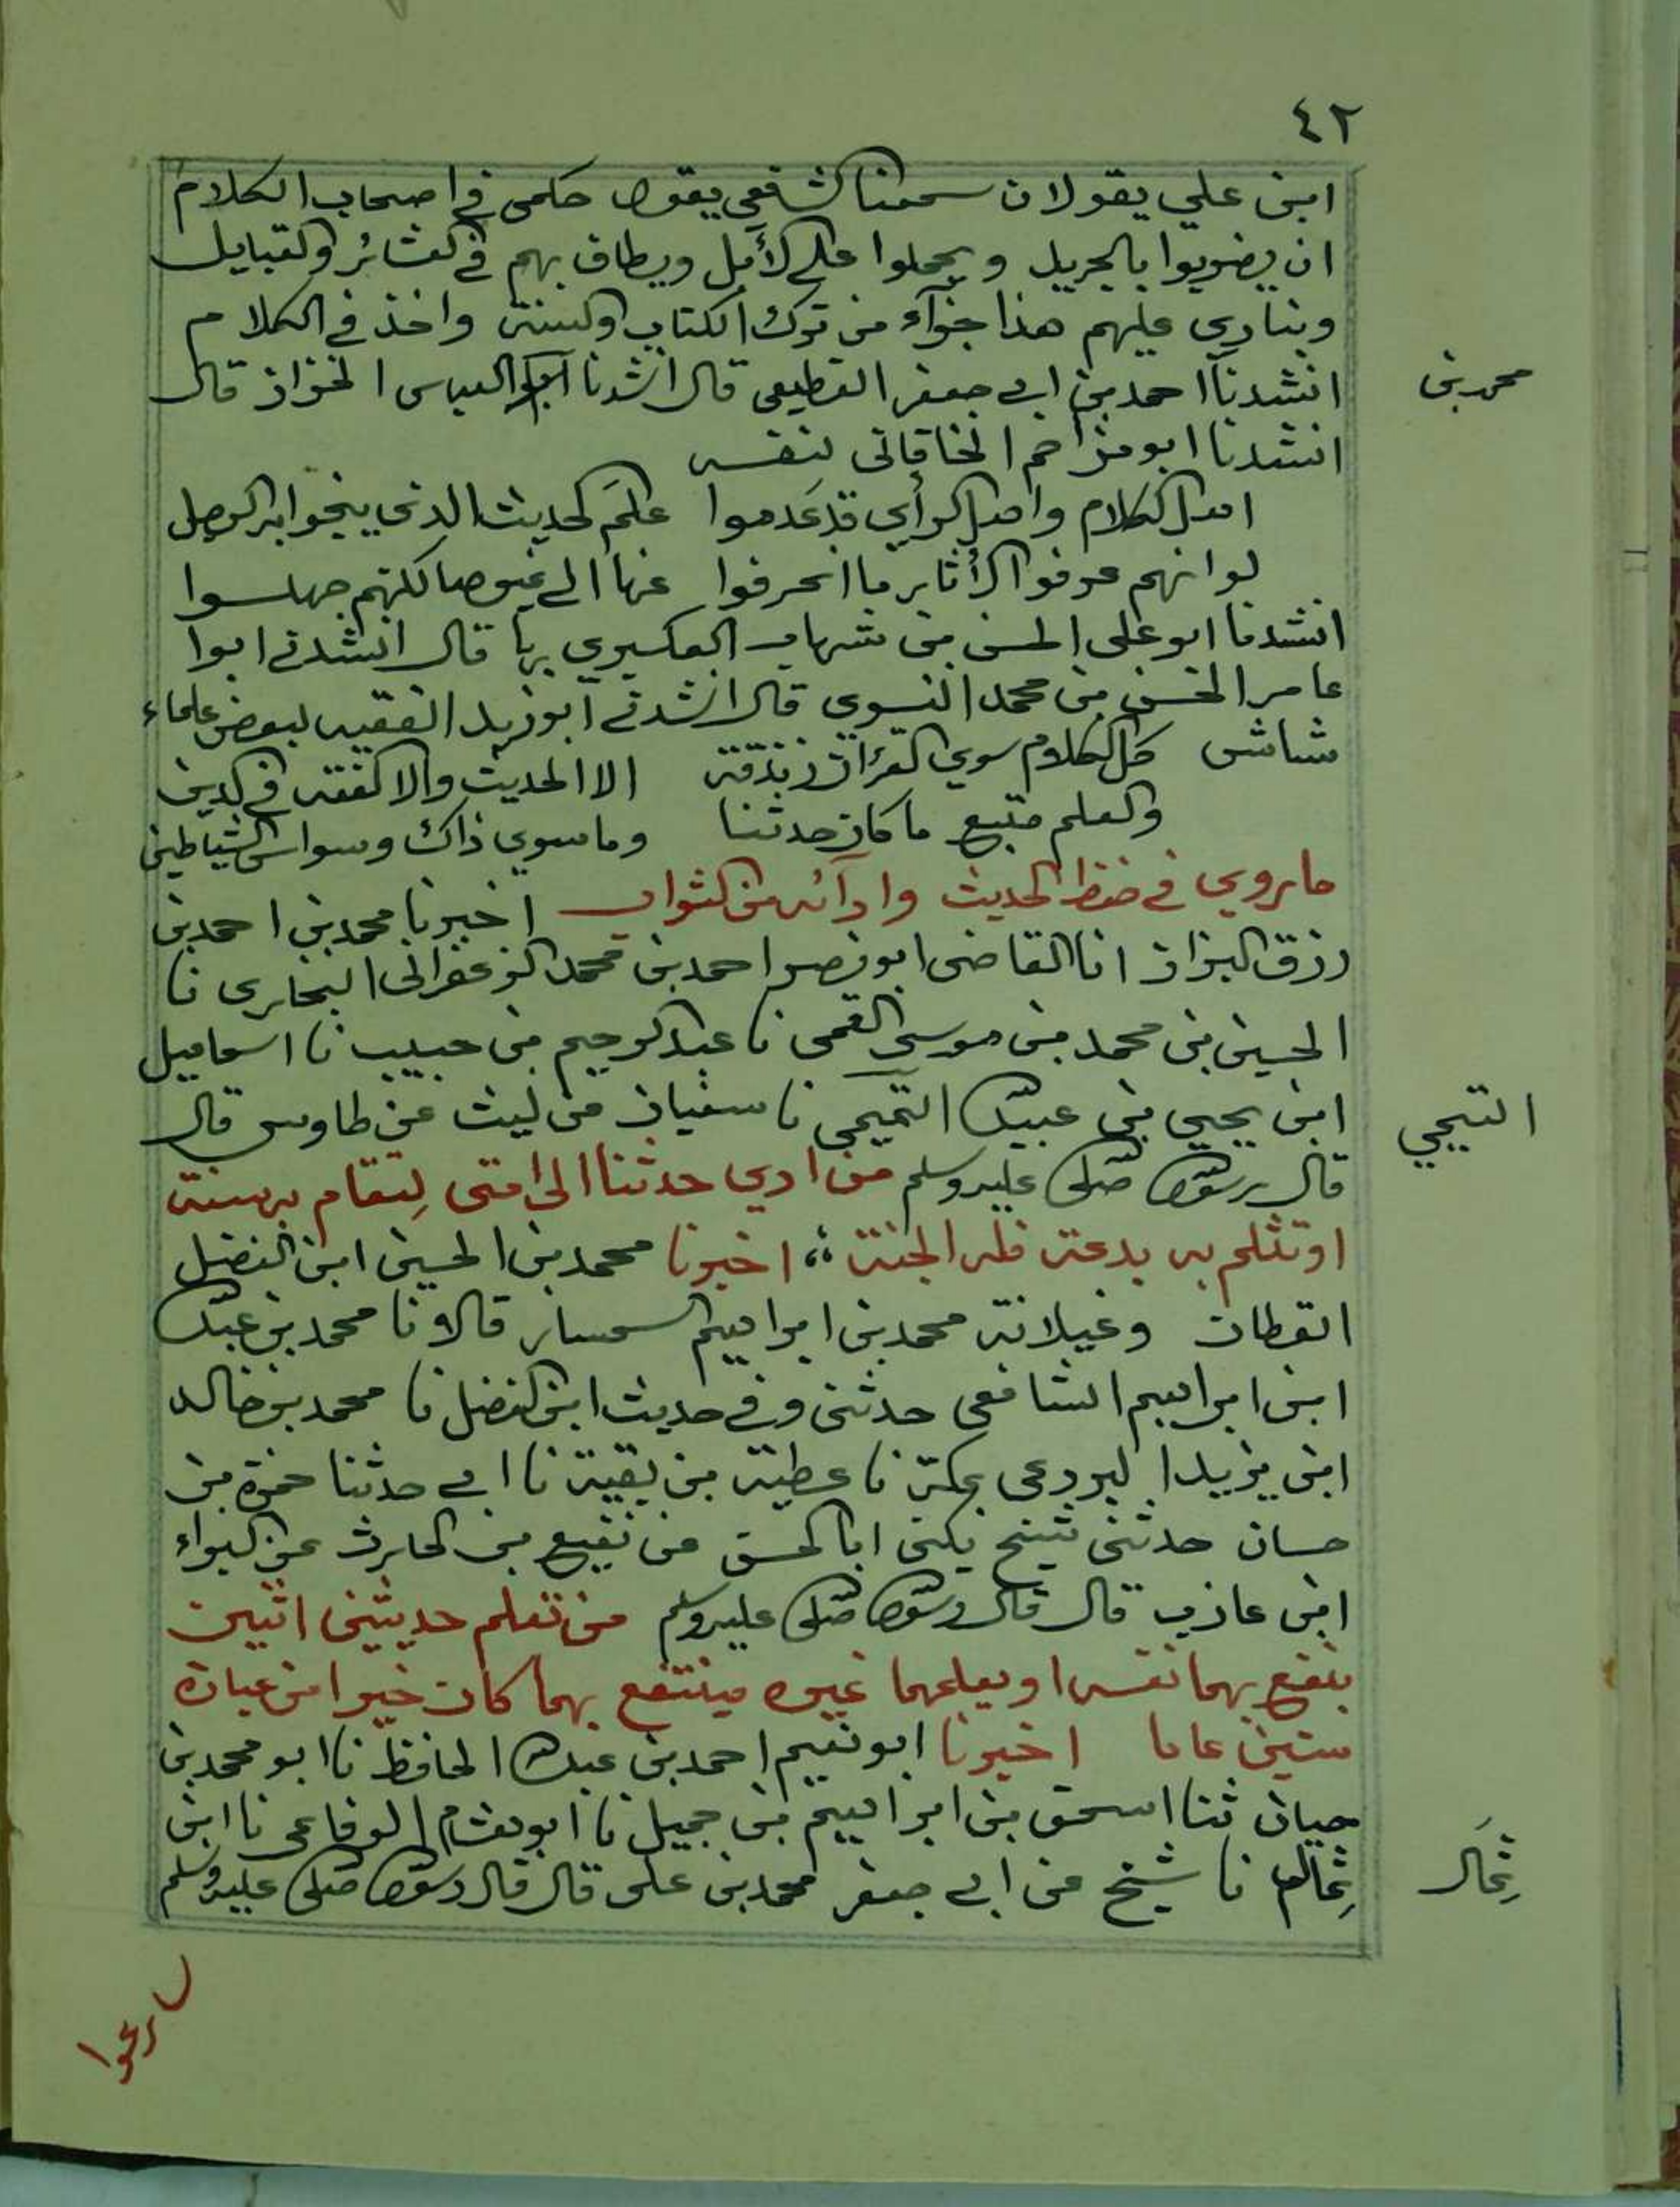 ٤٢
ابن علي يقولان سمعنا الشافعي يقول حكمي في اصحاب الكلام
ان يضربوا بالجريد ويحملوا على الأبل ويطاف بهم في العشائر والقبايل
وينادي عليهم هذا جزآء من ترك الكتاب والسنة واخذ في الكلام
انشدنآ احمد بن ابي جعفر القطيعي قال انشدنا ابو العباس الخزاز قال
محمد بن
انشدنا ابو مزاحم الخاقاني لنفسه
اهل الكلام واهل الرأي قد عَدموا علمَ الحديث الذي ينجوا به الرجل
لو انهم عرفوا الأثار ما انحرفوا عنها الى غيرها لكنهم جهلوا
انشدنا ابو على الحسن بن شهاب العكبري بها قال انشدني ابوا
عامر الحسن بن محمد النسوي قال انشدني ابو زيد الفقيه لبعض علماء
شاش كل الكلام سوي القرأن زندقة الا الحديث والا الفقه في الدين
والعلم متبع ما كان حدثنا وما سوي ذاك وسواس الشياطين
ما روي في حفظ الحديث وادآئه من الثواب اخبرنا محمد بن احمد بن
رزق البزاز انا القاضي ابو نصر احمد بن محمد الزعفراني البخاري نا
الحسين بن محمد بن موسى القمي نا عبد الرحيم بن حبيب نا اسماعيل
ابن يحيي بن عبيد الله التميمي نا سفيان عن ليث عن طاوس قال
التيمي
قال رسول الله صلى الله عليه وسلم من ادي حدثنا الى امتي لِتقام به سنة
او تثلم به بدعة فله الجنة ؛؛ اخبرنا محمد بن الحسين ابن الفضل
القطان وغيلانة محمد بن ابراهيم السمسار قالا نا محمد بن عبد الله
ابن ابراهيم الشافعي حدثني وفي حديث ابن الفضل نا محمد بن خالد
ابن يزيد البردعي بمكة نا عطية بن بقية نا ابي حدثنا حمزة بن
حسان حدثني شيخ يكنى ابا الحسن عن نفيع بن الحارث عن البراء
ابن عازب قال قال رسول الله صلى الله عليه وسلم من تعلم حديثين اثنين
ينفع بهما نفسه او يعلمهما غيره فينتفع بهما كان خيرا من عبادة
ستين عاما اخبرنا ابو نعيم احمد بن عبد الله الحافظ نا ابو محمد بن
حيان ثنا اسحق بن ابراهيم بن جميل نا ابو هشام الرفاعي نا ابن
يمان نا شيخ عن ابي جعفر محمد بن على قال قال رسول الله صلى الله عليه وسلم
سارعوا